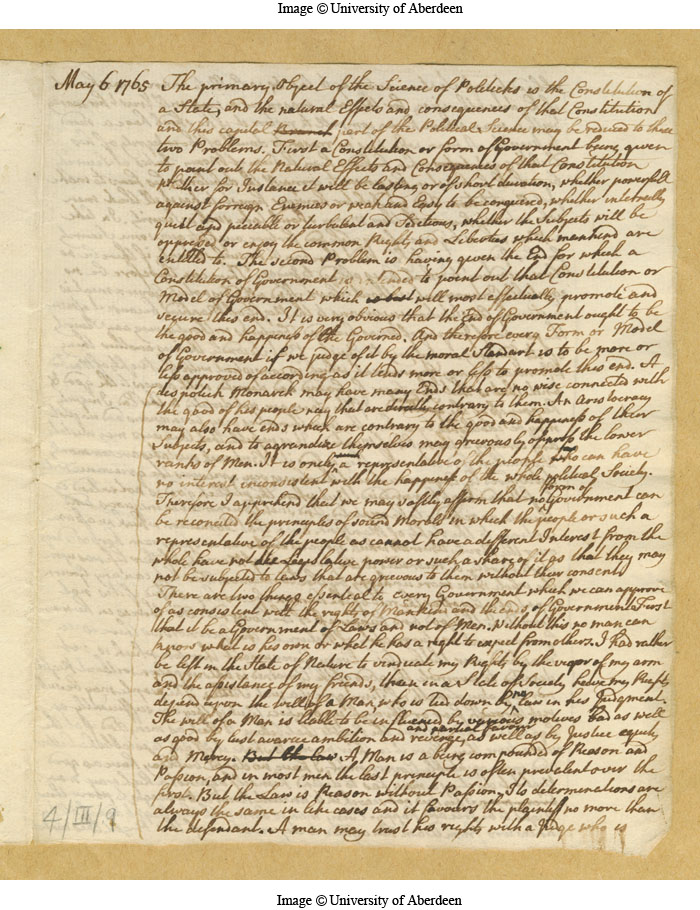 Image © University of Aberdeen
May 6 1765 The primary Object of the Science of Politicks is the Constitution of
a State, and the natural Effects and consequences of that Constitution
and this capital Branch part of the Political Science may be reduced to these
two Problems. First a Constitution or form of Government being given
to point out the Natural Effects and Consequences of that Constitution
whether for Instance it will be lasting or of short duration, whether powerfull
against forreign Enemies or weak and Easy to be conquered, whether internally
quiet and peicable or turbulent and Seditious, whether the Subjects will be
oppressed or enjoy the common Rights and Liberties which mankind are
entitled to. The second Problem is having given the End for which a
Constitution of Government is intended to point out that Constitution or
Model of Government which is best will most effectually promote and
secure this end. It is very obvious that the End of Government ought to be
the good and happiness of the Governed. And therefore every Form or Model
of Government if we judge of it by the moral Standart is to be more or
less approved of according as it tends more or less to promote this end. A
despotick Monarch may have many Ends that are no wise connected with
the good of his people nay that are directly contrary to them. An Aristocracy
may also have ends which are contrary to the good and happiness of their
Subjects, and to agrandize themselves may grievously oppress the lower
ranks of Men. It is onely a representative of the people who can have
no interest inconsistent with the happiness of the whole political Society.
Therefore I apprehend that we may safely affirm that no form of Government can
be reconciled the principles of sound Morals in which the people or such a
representative of the people as cannot have a different Interest from the
whole have not the Legislative power or such a share of it as that they may
not be subjected to laws that are grievous to them without their consent
There are two things essential to every Government which we can approve
of as consistent with the rights of Mankind and the ends of Government First
that it be a Government of Laws and not of Men. Without this no man can
know what is his own or what he has a right to expect from others. I had rather
be left in the State of Nature to vindicate my Rights by the vigor of my arm
and the assistance of my friends, than in a State of Society have my Rights
depend upon the will of a Man, who is tied down by no law in his Judgment.
The will of a Man is liable to be influenced by various motives bad as well
as good by lust avarice ambition and revenge, and partial favour as well as by Justice equity
and Mercy. But the law A Man is a being compounded of Reason and
Passion, and in most men the last principle is often prevalent over the
first. But the Law is Reason without Passion, Its determinations are
always the same in like cases and it favours the plaintiff no more than
the defendant. A man may trust his rights with a Judge who is
4/III/9
Image © University of Aberdeen